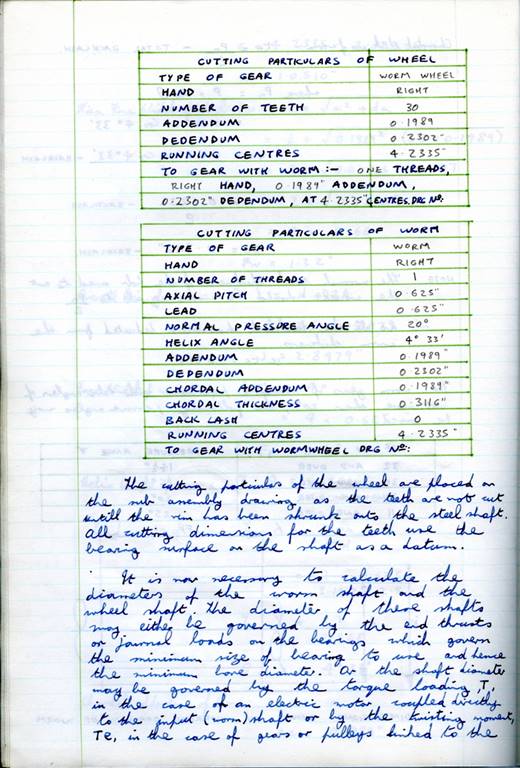 CUTTING PARTICULARS OF WHEEL
TYPE OF GEAR WORM WHEEL
HAND RIGHT
NUMBER OF TEETH 30
ADDENDUM 0.1989
DEDENDUM 0.2302"
RUNNING CENTRES 4.2335"
TO GEAR WITH WORM:- ONE THREADS,
RIGHT HAND, 0.1989" ADDENDUM,
0.2302" DEDENDUM, AT 4.2335" CENTRES. DRG Nº:
CUTTING PARTICULARS OF WORM
TYPE OF GEAR WORM
HAND RIGHT
NUMBER OF THREADS 1
AXIAL PITCH 0.625"
LEAD 0.625"
NORMAL PRESSURE ANGLE 20°
HELIX ANGLE 4° 33'
ADDENDUM 0.1989"
DEDENDUM 0.2302"
CHORDAL ADDENDUM 0.1989"
CHORDAL THICKNESS 0.3116"
BACK LASH 0
RUNNING CENTRES 4.2335"
TO GEAR WITH WORMWHEEL DRG Nº:
The cutting particulars of the wheel are placed on
the sub assembly drawing as the teeth are not cut
untill the rim has been shrunk onto the steel shaft.
All cutting dimensions for the teeth use the
bearing surface on the shaft as a datum.
It is now necessary to calculate the
diameters of the worm shaft and the
wheel shaft. The diameter of these shafts
may either be governed by the end thrusts
or journal loads on the bearings which govern
the minimum size of bearing to use and hence
the minimum bore diameter. Or the shaft diameter
may be governed by the torque loading, T,
in the case of an electric motor coupled directly
to the input (worm) shaft or by the twisting moment,
Te, in the case of gears or pulleys linked to the